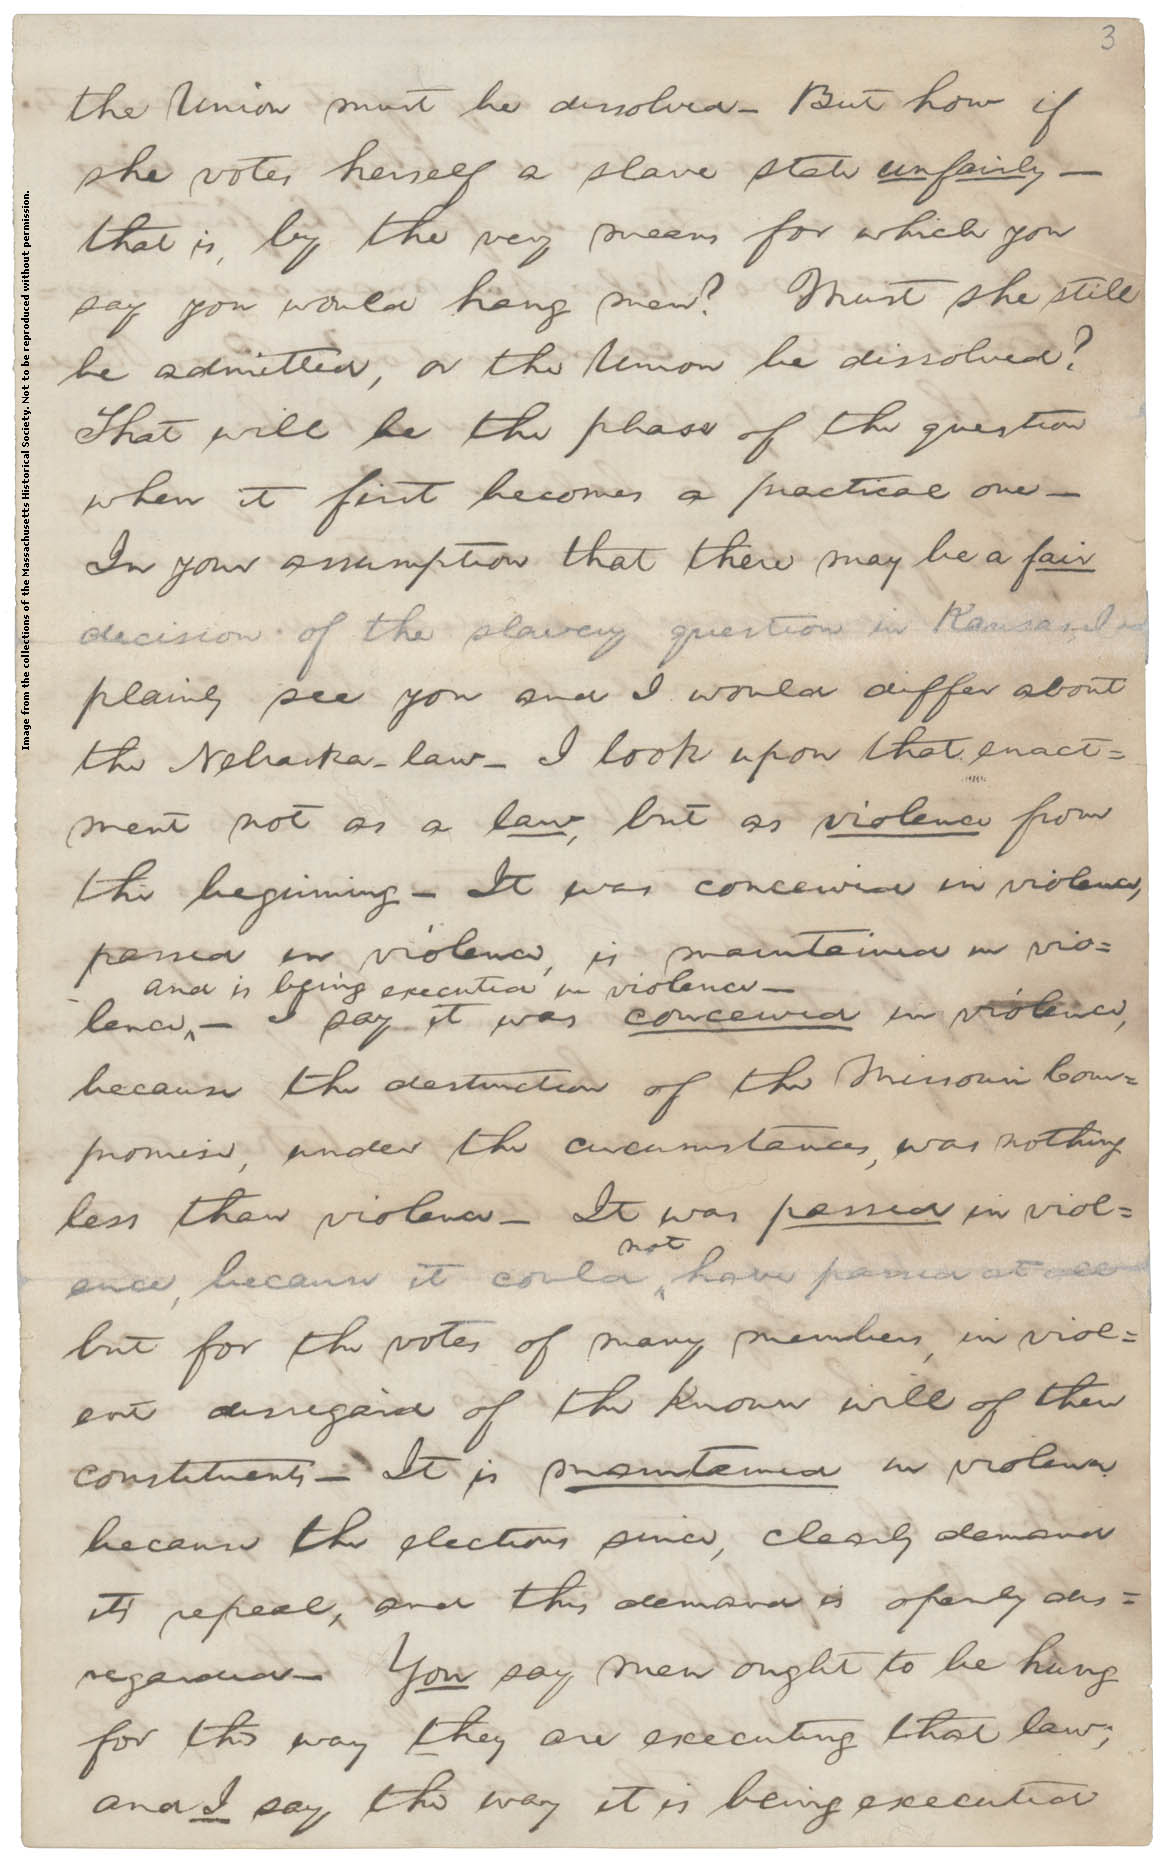 3
the Union must be dissolved — But how if
she votes herself a slave state unfairly —
that is, by the very means for which you
say you would hang men? Must she still
be admitted, or the Union be dissolved?
That will be the phase of the question
when it first becomes a practical one —
In your assumption that there may be a fair
decision of the slavery question in Kansas, I
plainly see you and I would differ about
the Nebraska-law — I look upon that enact=
ment not as a law, but as violence from
the beginning — It was conceived in violence,
passed in violence, is maintained in vio=
and is being executed in violence —
lence, — I say it was conceived in violence,
because the destruction of the Missouri Com=
promise, under the circumstances, was nothing
less than violence — It was passed in viol=
not
ence, because it could have passed at all
but for the votes of many members, in viol=
ent disregard of the known will of their
constituents — It is maintained in violence
because the elections since, clearly demand
it's repeal, and this demand is openly dis=
regarded — You say men ought to be hung
for the way they are executing that law;
and I say the way it is being executed
Image from the collections of the Massachusetts Historical Society. Not to be reproduced without permission.